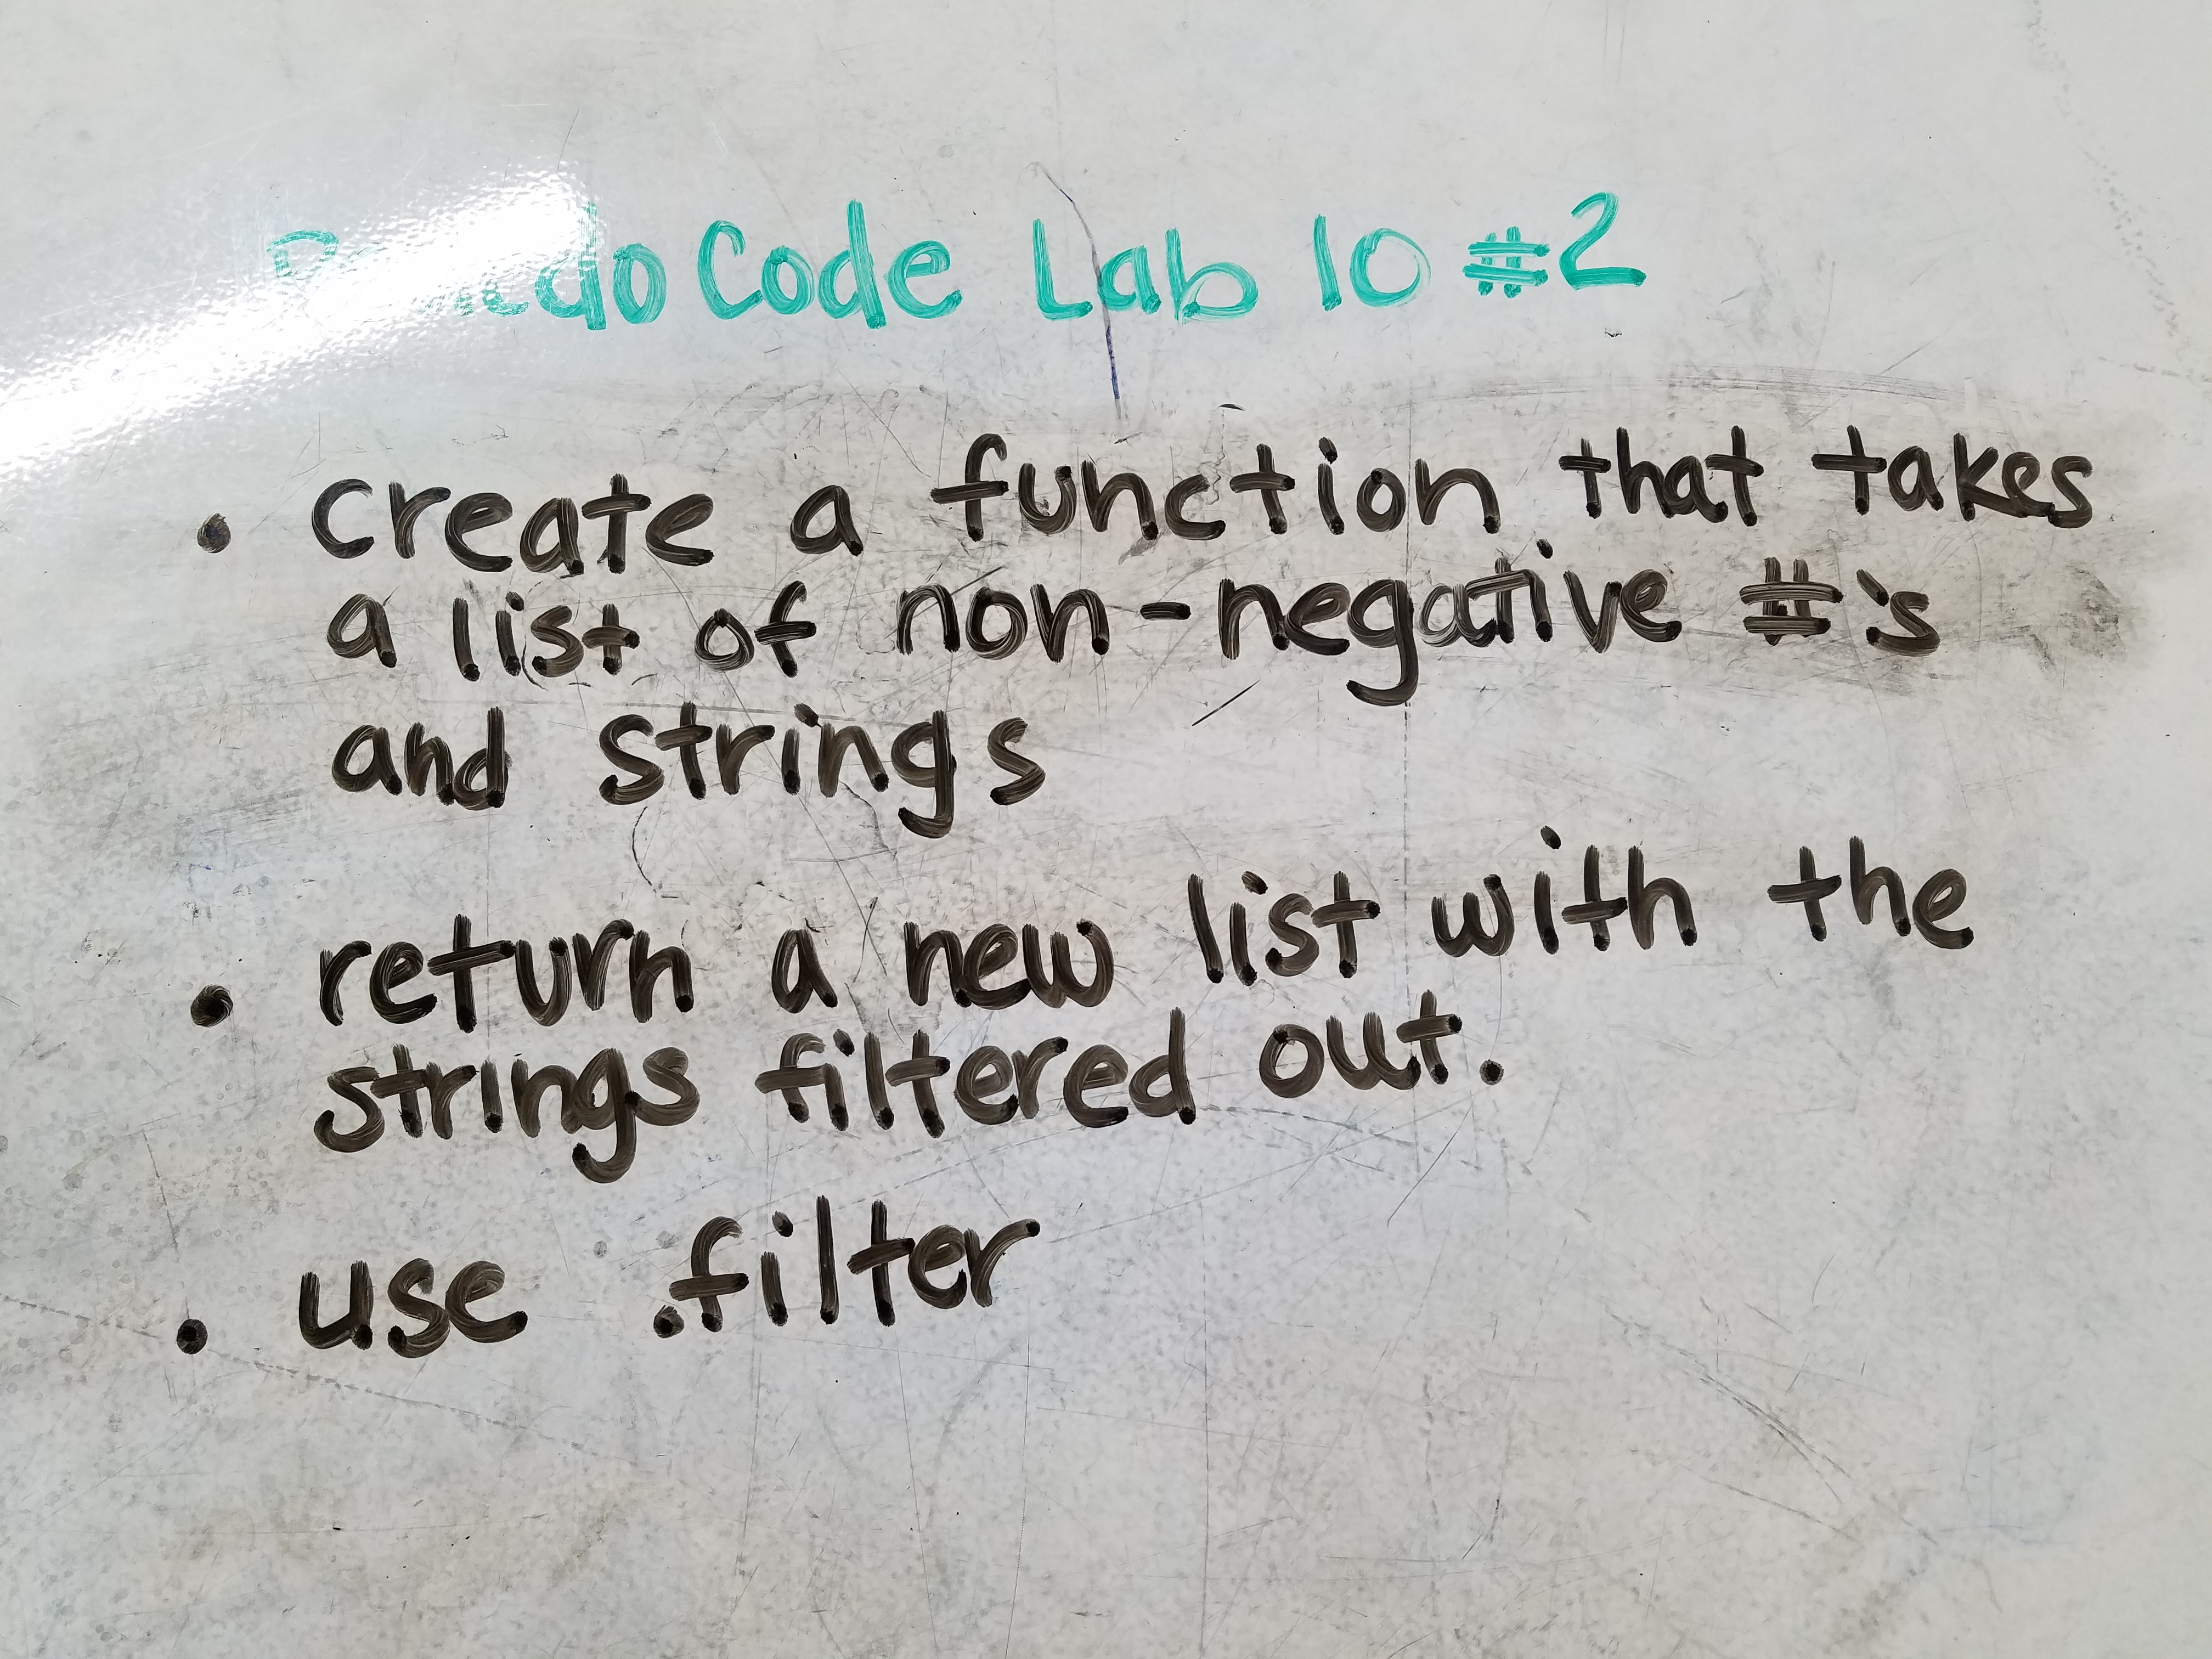 Code Lab 10 #2
• create a function that takes
a list of non-negative #'s
and strings
• return a new list with the
strings filtered out.
• use .filter